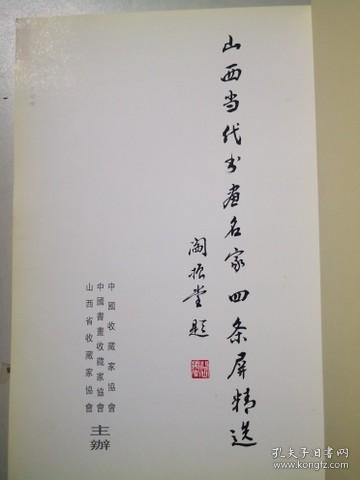 山西当代书画名家四条屏精选
阎振堂题
中國收藏家協會
中國書畫收藏家協會
山西省收藏家協會
主辦
孔夫子旧书网